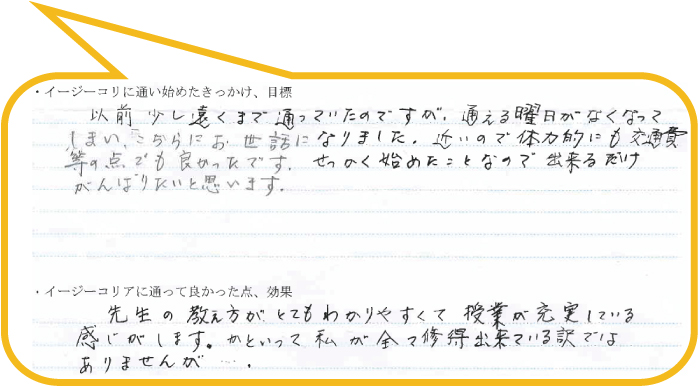 ・イージーコリに通い始めたきっかけ、目標
以前少し遠くまで通っていたのですが、通える曜日がなくなって
しまい、こちらにお世話になりました。近いので体力的にも交通費
等の点でも良かったです。せっかく始めたことなので出来るだけ
がんばりたいと思います。
・イージーコリアに通って良かった点、効果
先生の教え方がとてもわかりやすくて授業が充実している
感じがします。かといって私が全て修得出来ている訳では
ありませんが…。